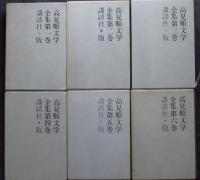 高見順文学
全集第一巻
講談社・版
高見順文学
全集第二巻
講談社・版
高見順文学
全集第三巻
講談社・版
高見順文学
全集第四巻
講談社・版
高見順文学
全集第五巻
講談社・版
高見順文学
全集第六巻
講談社・版